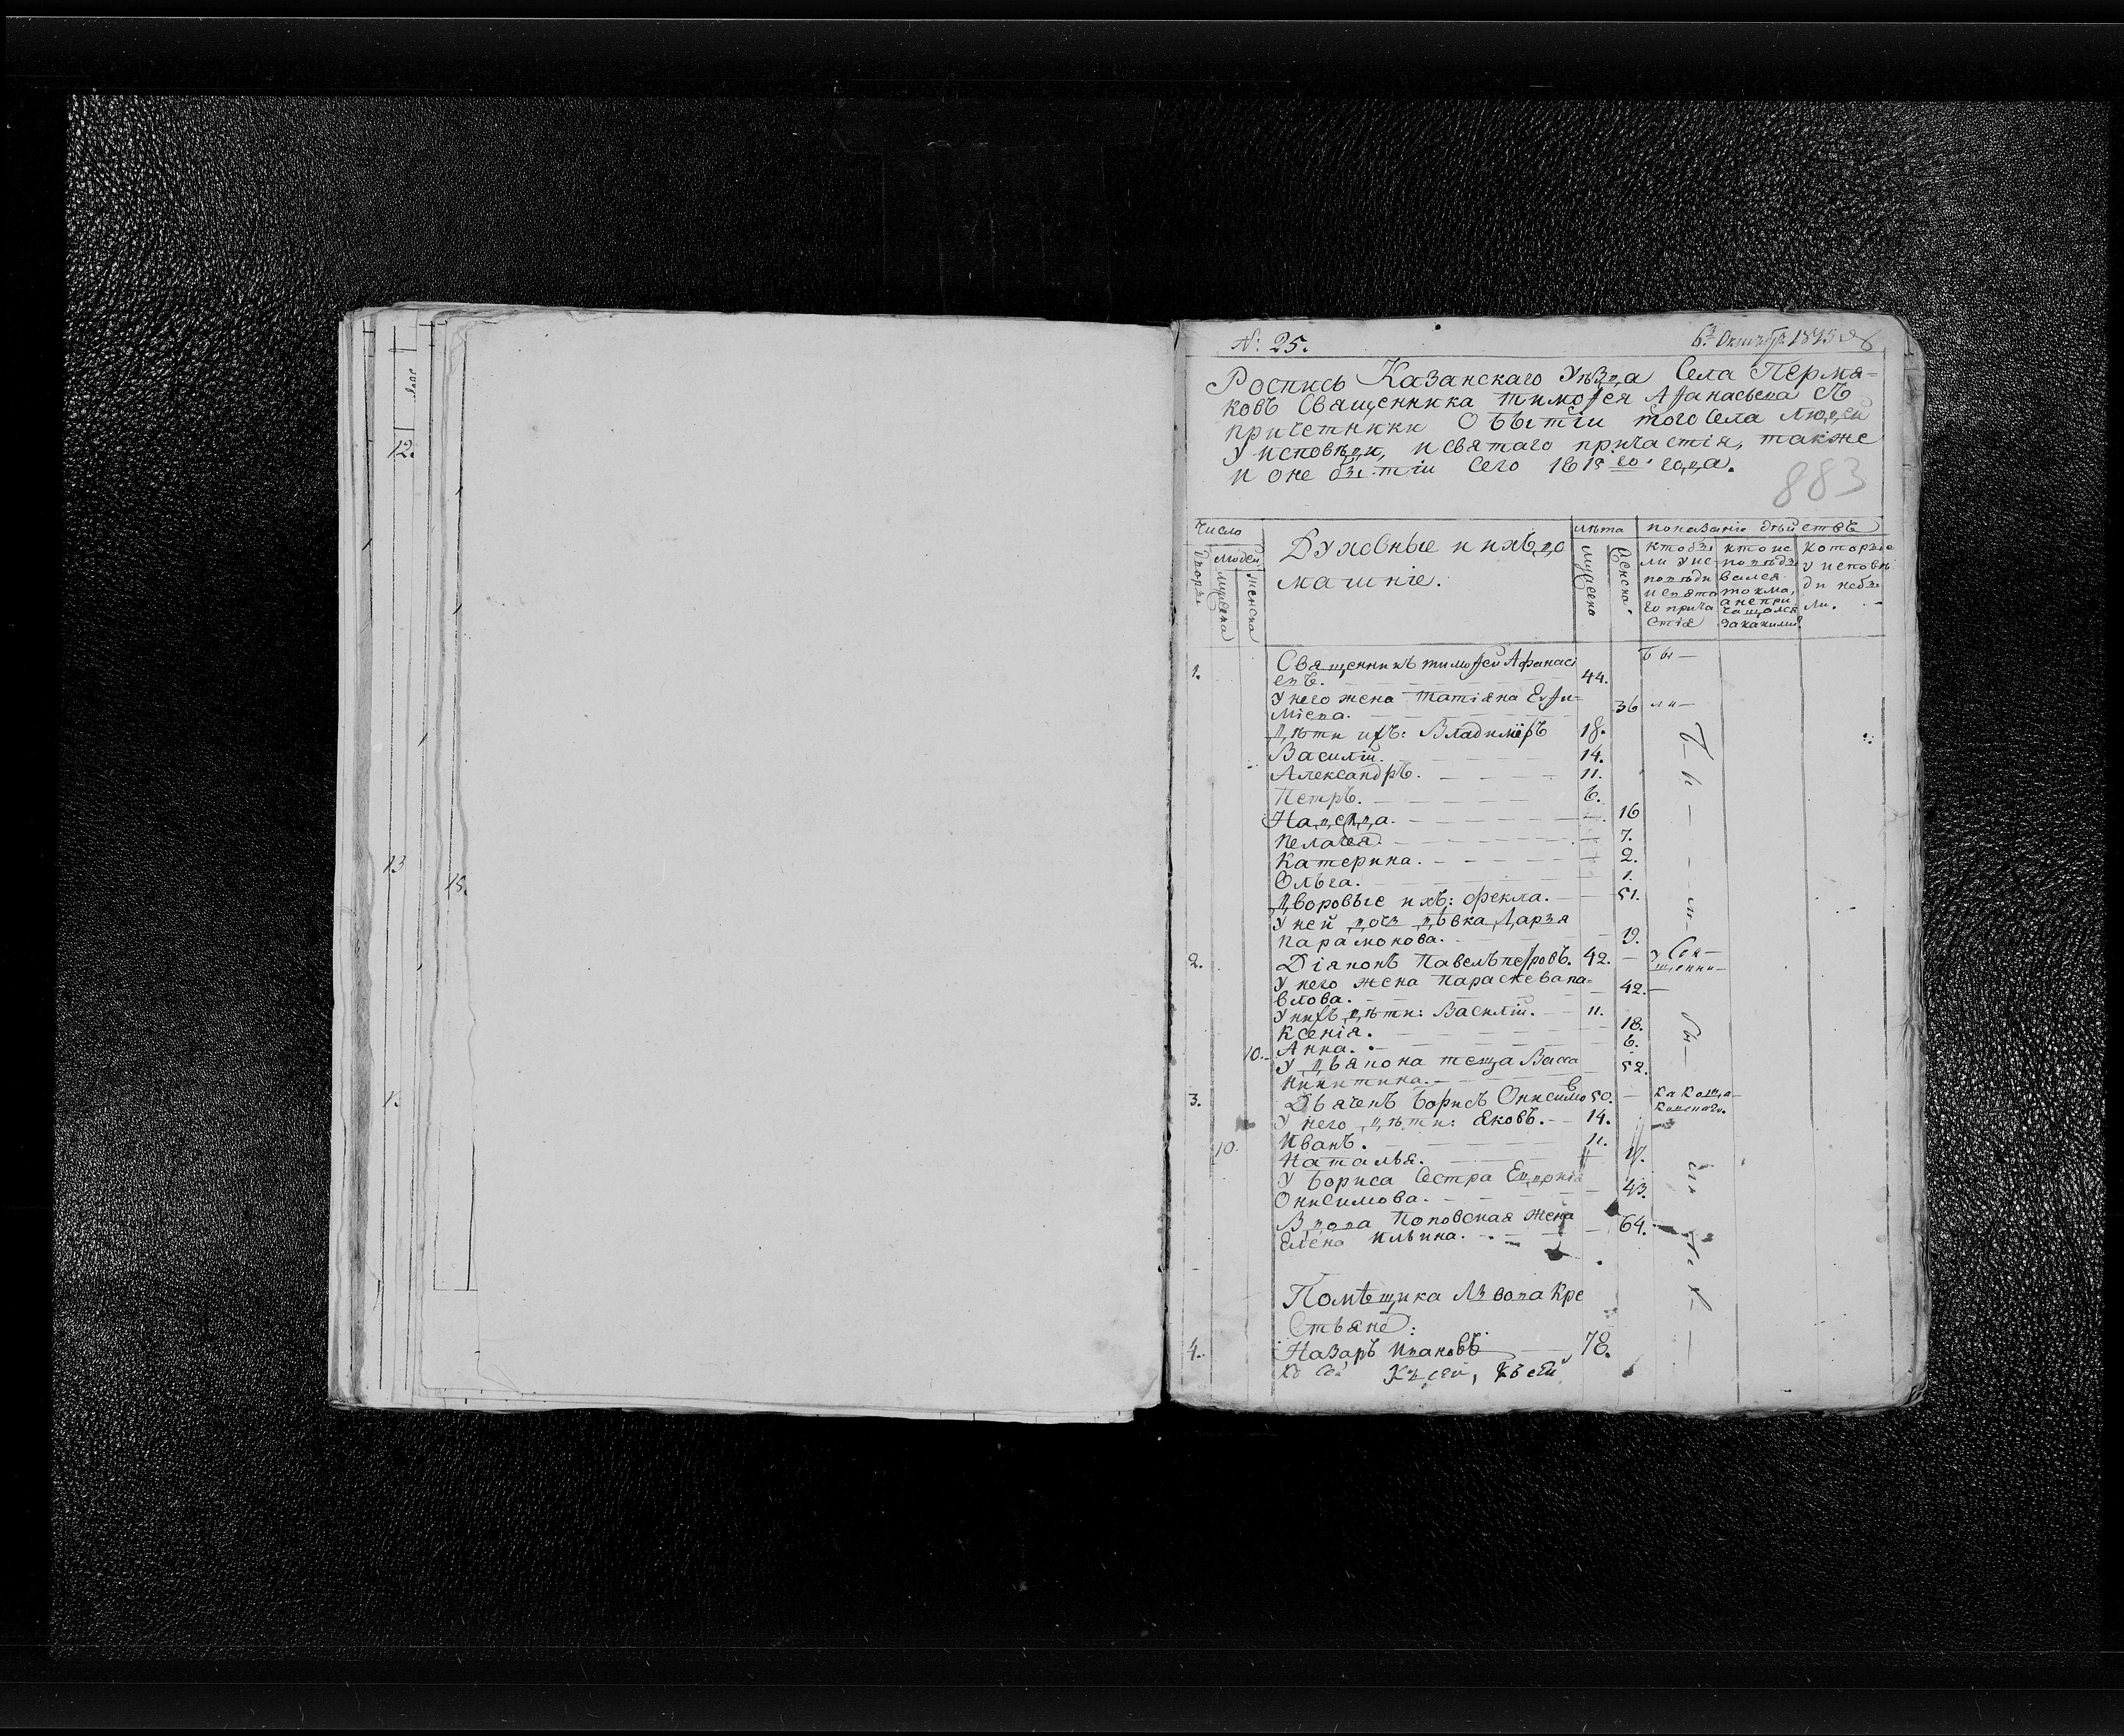 12.
13
15.
№: 25.
6го Октября 1815
Роспись Казанскаго Уѣзда Села Пермя-
ковъ Священника тимоѳея Аѳанасьева Съ
причетники О Бытіи того Села людей
У исповѣди, и святаго причастія, также
и о не бытіи Сего 1815 го года.
883
Число
людей
дворы
мужеска
женска
Духовные и ихъ до
машніе.
лѣта
мужеска
женска.
показаніе дѣйствъ
кто бы
ли у ис-
повѣди
и свята
го прича
стія
кто ис
повѣды
вался
токмо,
а не при
чащался
за какимъ
которые
у исповѣ
ди небы
ли.
1. Священникъ тимоѳей Аѳанасі
евъ. 44. бы—
У него жена татіана Евѳи-
міева. 36 ли—
Дѣти ихъ: Владимиръ 18.
Василій. 14.
Александръ. 11.
Петръ. 6.
Надежда. 16
Пелагея. 7.
Катерина. 2.
Ольга. 1.
Дворовые ихъ: Фекла. 51.
У ней дочь дѣвка Дарья
Парамонова. 19.
2. Діаконъ Павелъ петровъ. 42. у Свя-
щенни—
У него жена Параскева па-
влова. 42.
У нихъ дѣти: Василій. 11.
Ксенія. 18.
10. Анна. 6.
У Дьякона теща Васса
Никитина. 52.
3. Дьячекъ Борисъ Онисимовъ 50.
У него дѣти: Яковъ. 14.
10. Иванъ. 11.
Наталья. 17.
У Бориса Сестра Евдокія
Онисимова. 43.
Вдова Поповская жена
Елена Ильина. 64.
Помѣщика Львова Кре
стьяне:
4. Назаръ Ивановъ 78.
Къ сей Къ сей, Къ сей